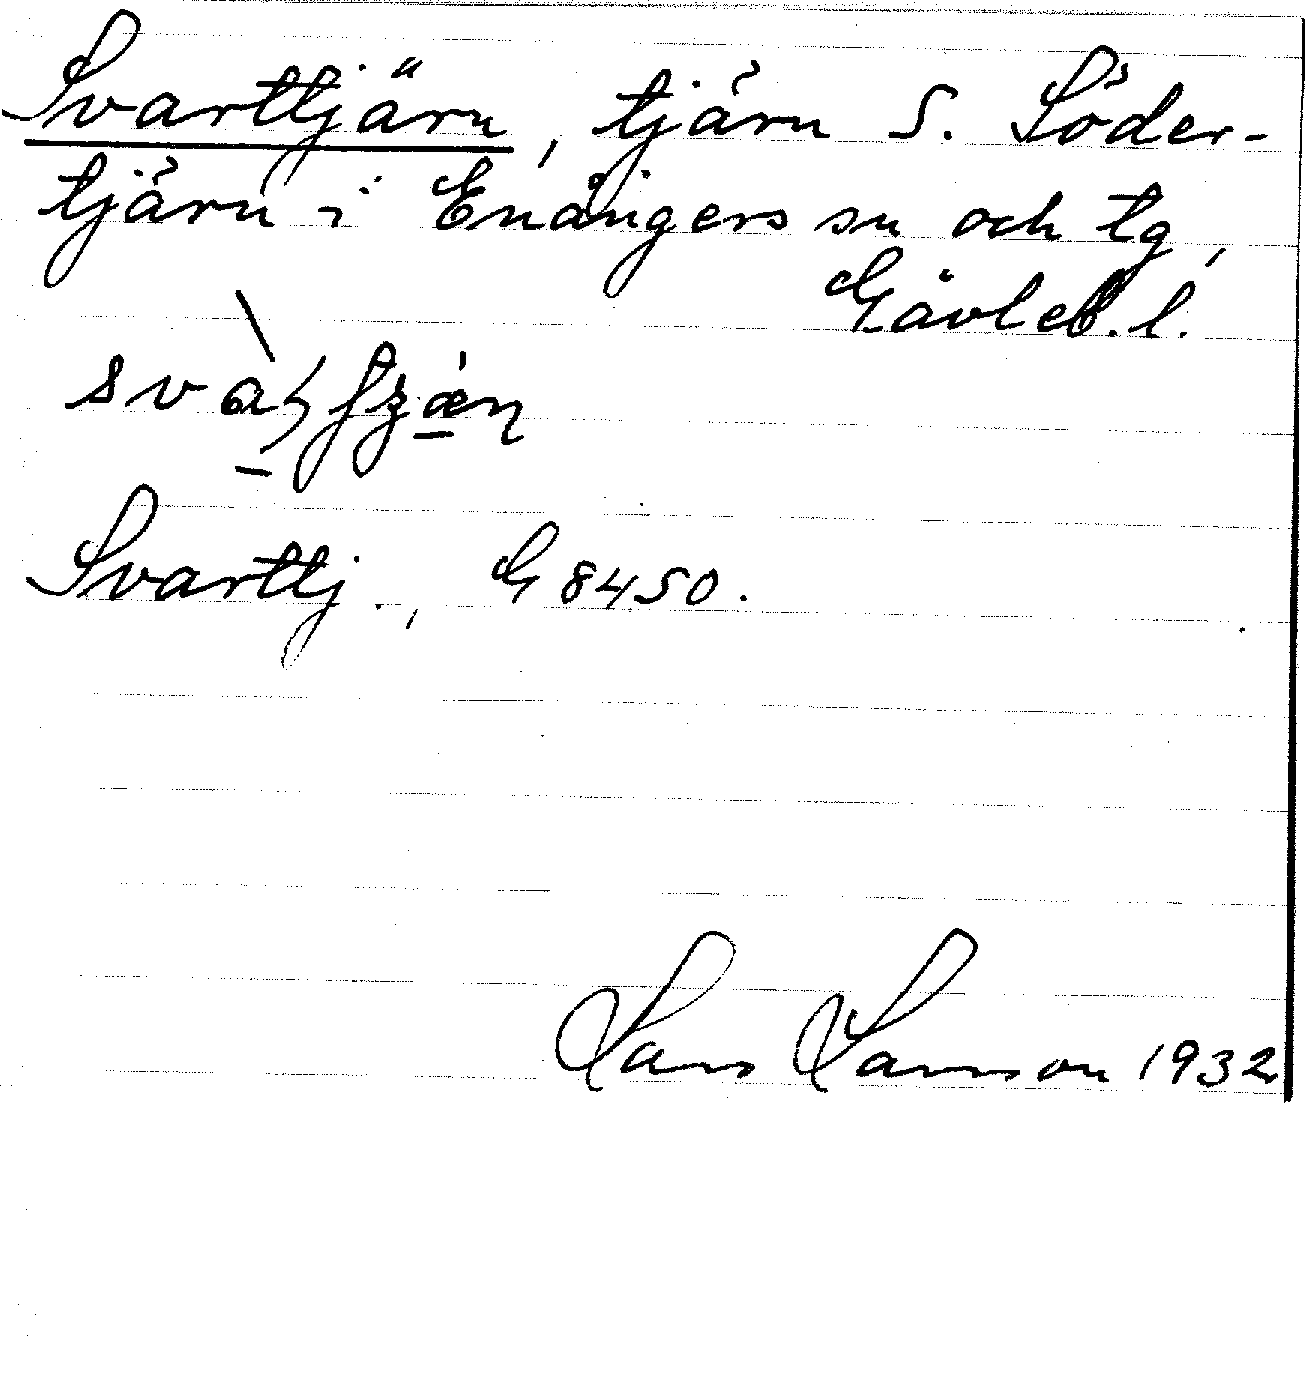 Svarttjärn, tjärn S. Söder-
tjärn i Enångers sn och tg,
Gävleb. l.
Svarttj., G 8450.
Lars Larsson 1932